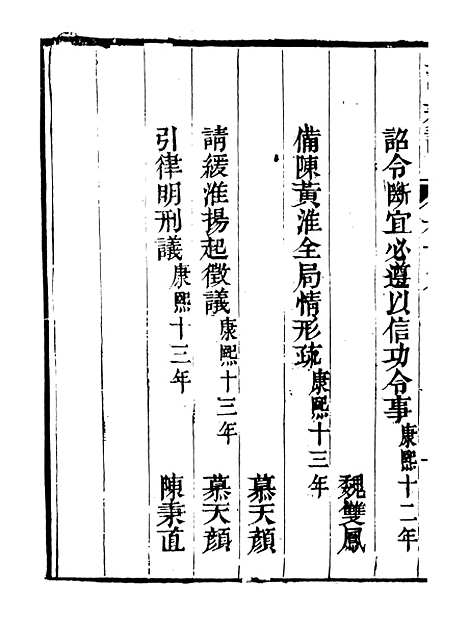 詔令斷宜必遵以信功令事康熙十二年
魏雙鳳
備陳黃淮全局情形疏康熙十三年
慕天顏
請緩淮揚起徵議康熙十三年 慕天顏
引律明刑議康熙十三年 陳秉直